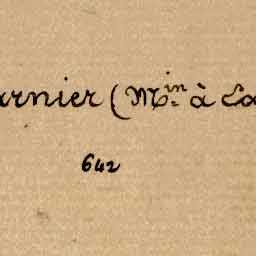 arnier (Min à La
642